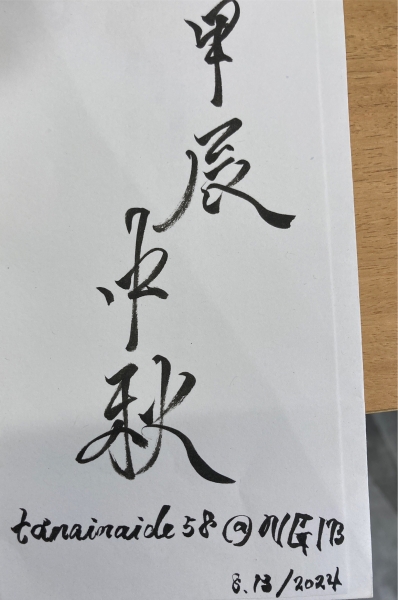 甲辰中秋
tanainaide58@NGIB
8.13/2024